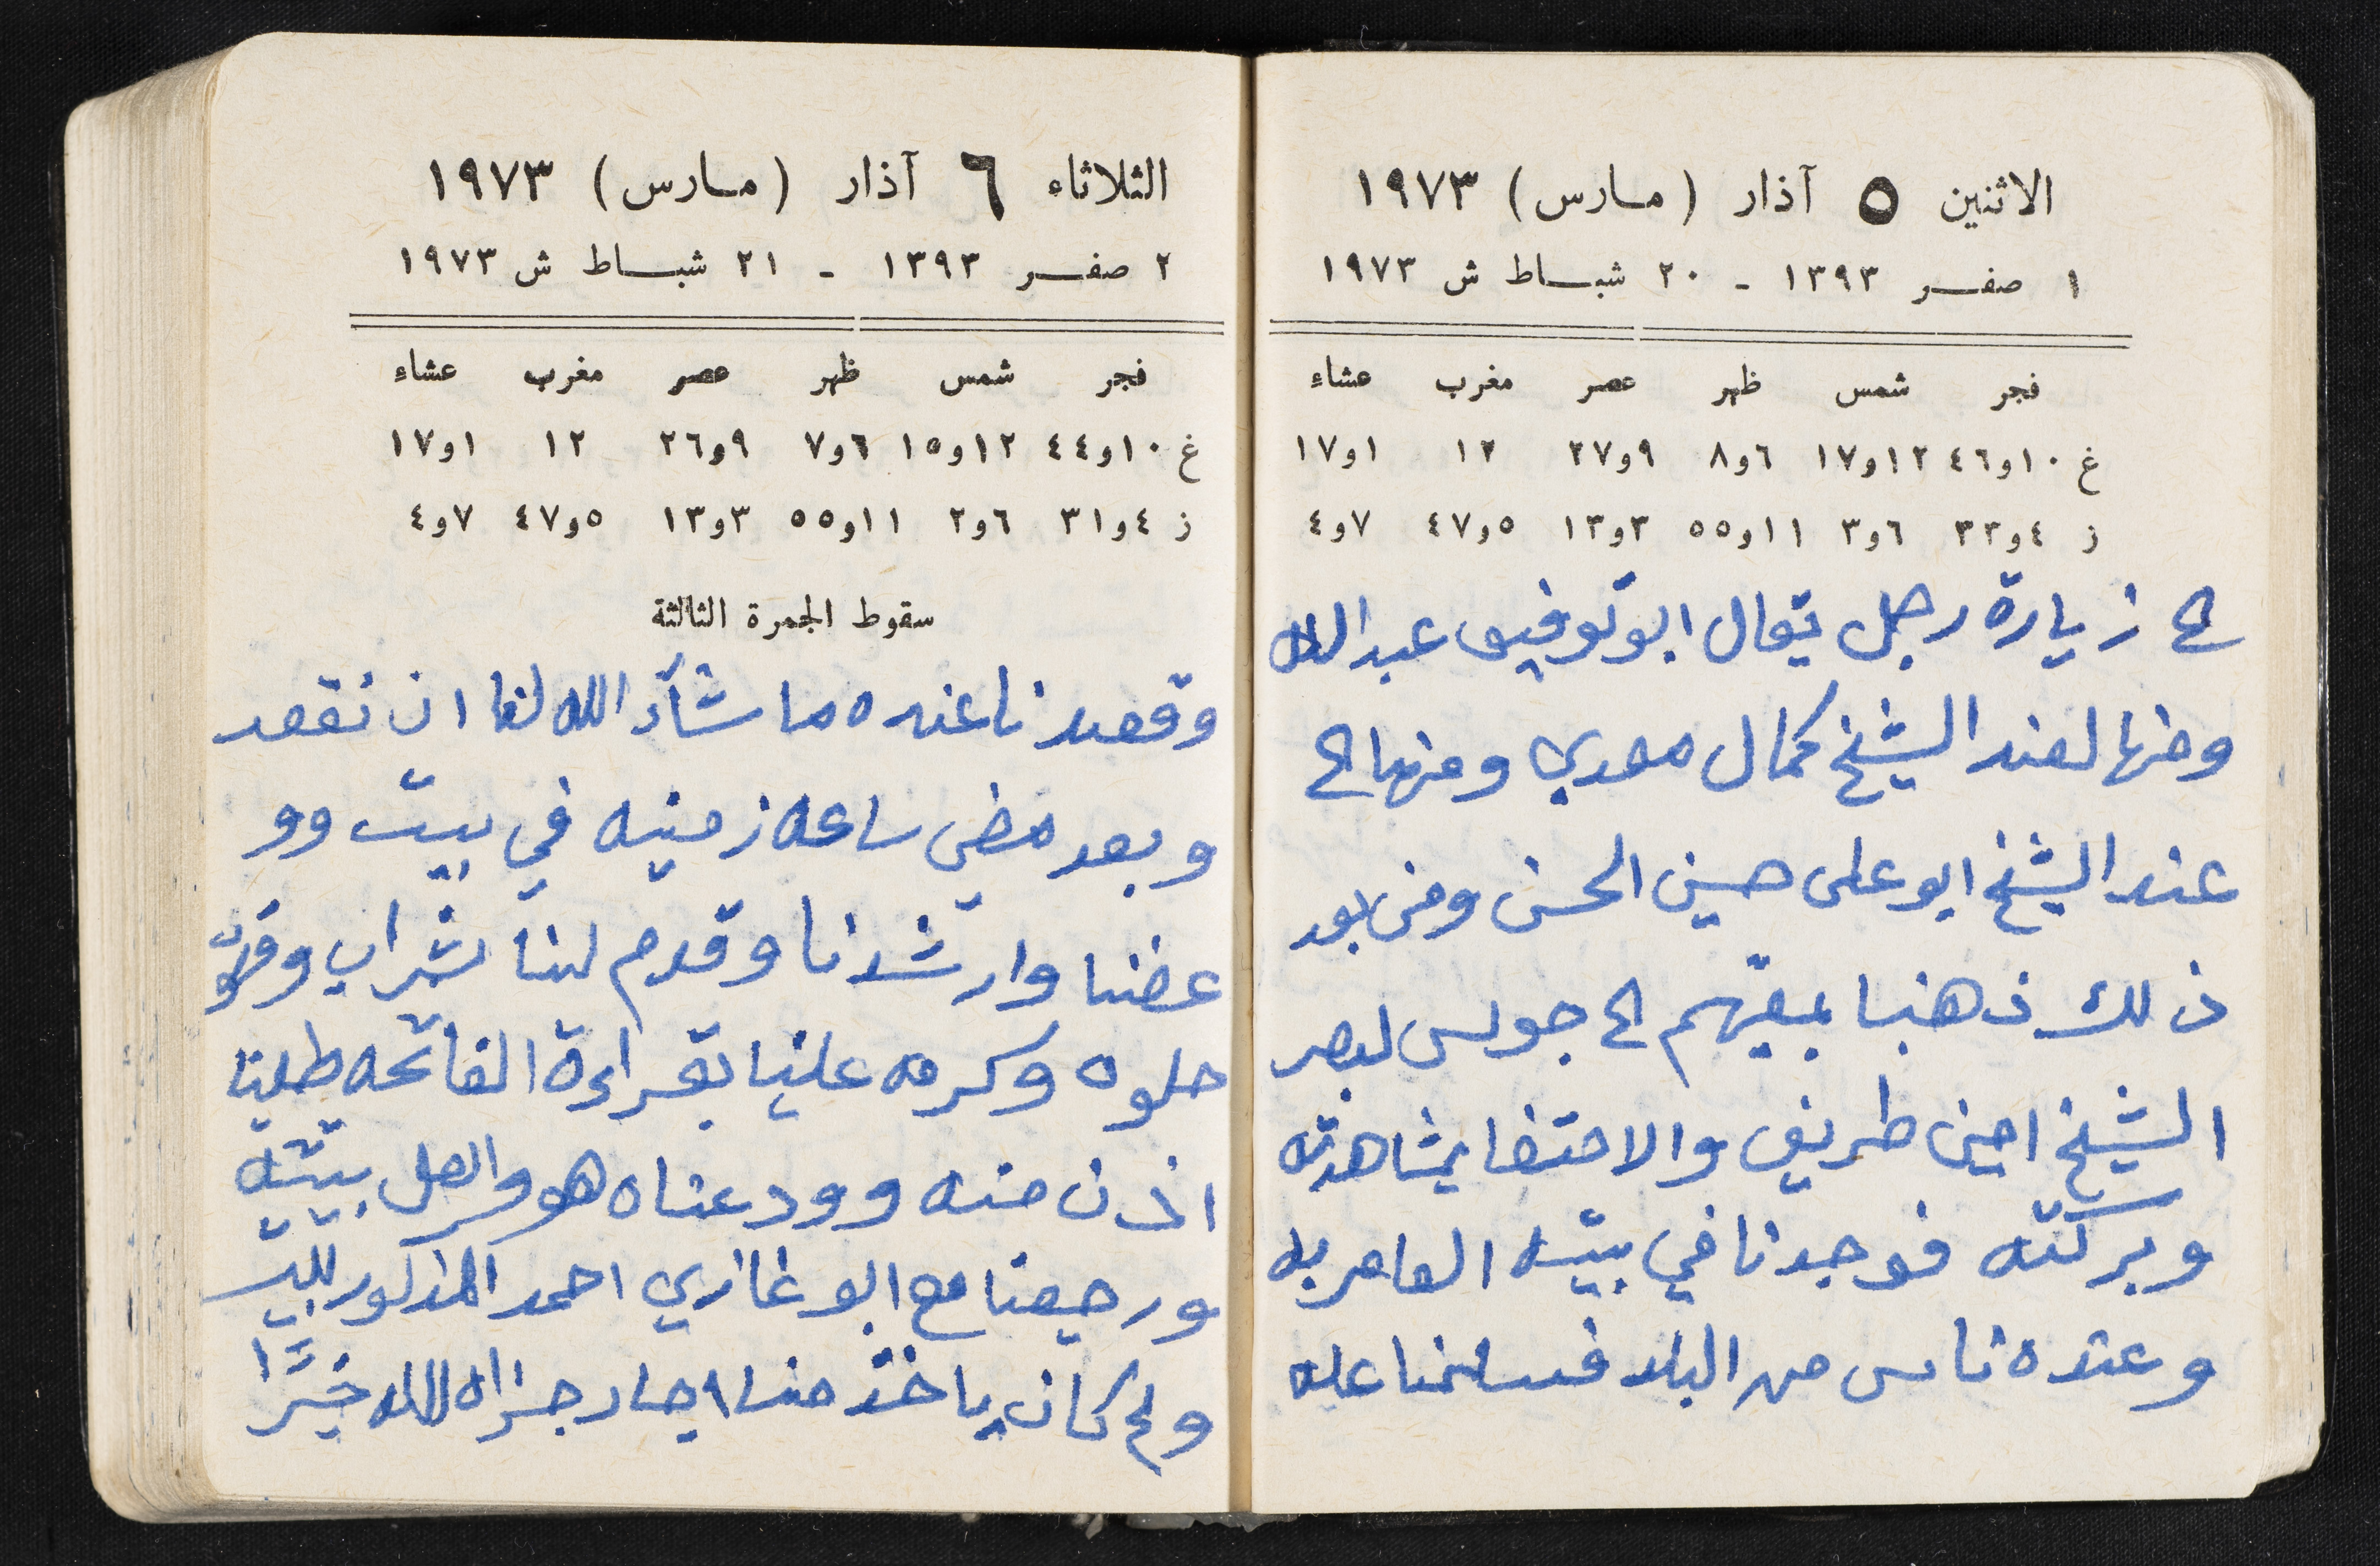 الاثنين ٥ آذار (مارس) ١٩٧٣
١ صفر ١٣٩٣ - ٢٠ شباط ش ١٩٧٣
فجر شمس ظهر عصر مغرب عشاء
غ ١٠و٤٦ ١٢و١٧ ٦و٨ ٩و٢٧ ١٢ ١و١٧
ز ٤و٣٣ ٦و٣ ١١و٥٥ ٣و١٣ ٥و٤٧ ٧و٤
الى زيارة رجل يقال ابو توفيق عبدالله
ومنها لعند الشيخ كمال معدي ومنها الى
عند الشيخ ابو على حسين الحسن ومن بعد
ذلك ذهبنا بمعيّتهم الى جولس لبصر
الشيخ امين طريف والاحتفا بمشاهدته
وبركته فوجدنا في بيته العامر به
وعنده ناس من البلد فسلمنا عليه
الثلاثاء ٦ آذار (مارس) ١٩٧٣
٢ صفر ١٣٩٣ - ٢١ شباط ش ١٩٧٣
فجر شمس ظهر عصر مغرب عشاء
غ ١٠و٤٤ ١٢و١٥ ٦و٧ ٩و٢٦ ١٢ ١و١٧
ز ٤و٣١ ٦و٢ ١١و٥٥ ٣و١٣ ٥و٤٧ ٧و٤
سقوط الجمرة الثالثة
وقعدنا عنده ما شآء الله لنا ان نقعد
وبعد مضي ساعه زمنيه في بيته وو
عضنا وارشدنا وقدم لنا شراب وقهوة
حلوه وكرمه علينا بقراءة الفاتحه طلبنا
اذن منه وودعناه هو واهل بيته
ورجعنا مع ابو غازي احمد المذكور للبيت
ولم كان ياخذ منا اجار جزاه الله خيرًا